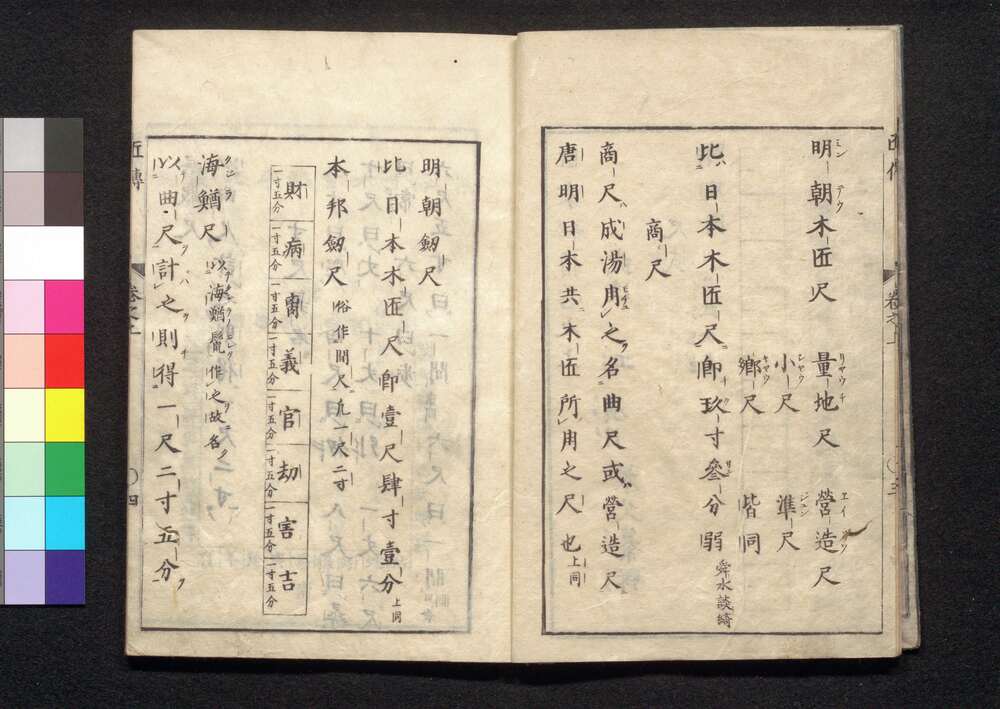 明朝木匠尺 量地尺 營造尺
小尺 準尺
鄉尺 皆同
比日本木匠尺即玖寸參分弱 舜水談綺
商尺
商尺成湯用之名曲尺或營造尺
唐明日本共木匠所用之尺也 上同
明朝劔尺
比日本木匠尺即壹尺肆寸壹分 上同
本邦劔尺 俗作間尺 凡一尺二寸
財 病 義 官 劫 害 吉
一寸五分 一寸五分 一寸五分 一寸五分 一寸五分 一寸五分 一寸五分 一寸五分
海鰌尺 以海鰌鬣作之故名
以曲尺計之則得一尺二寸五分
卷之上
四